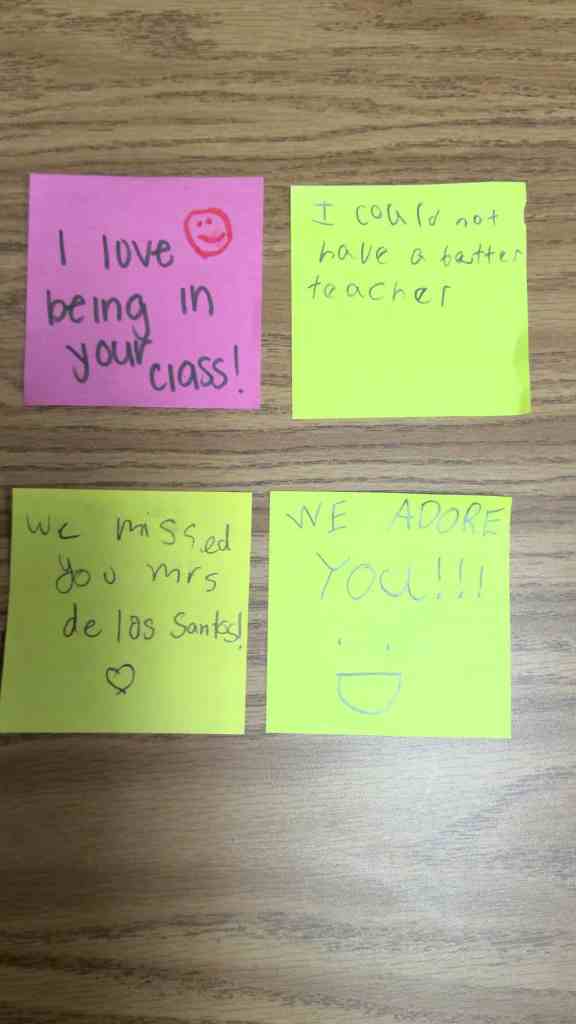 I love
being in
your
class!
I could not
have a better
teacher
We missed
you mrs
de los Santos!
WE ADORE
YOU!!!